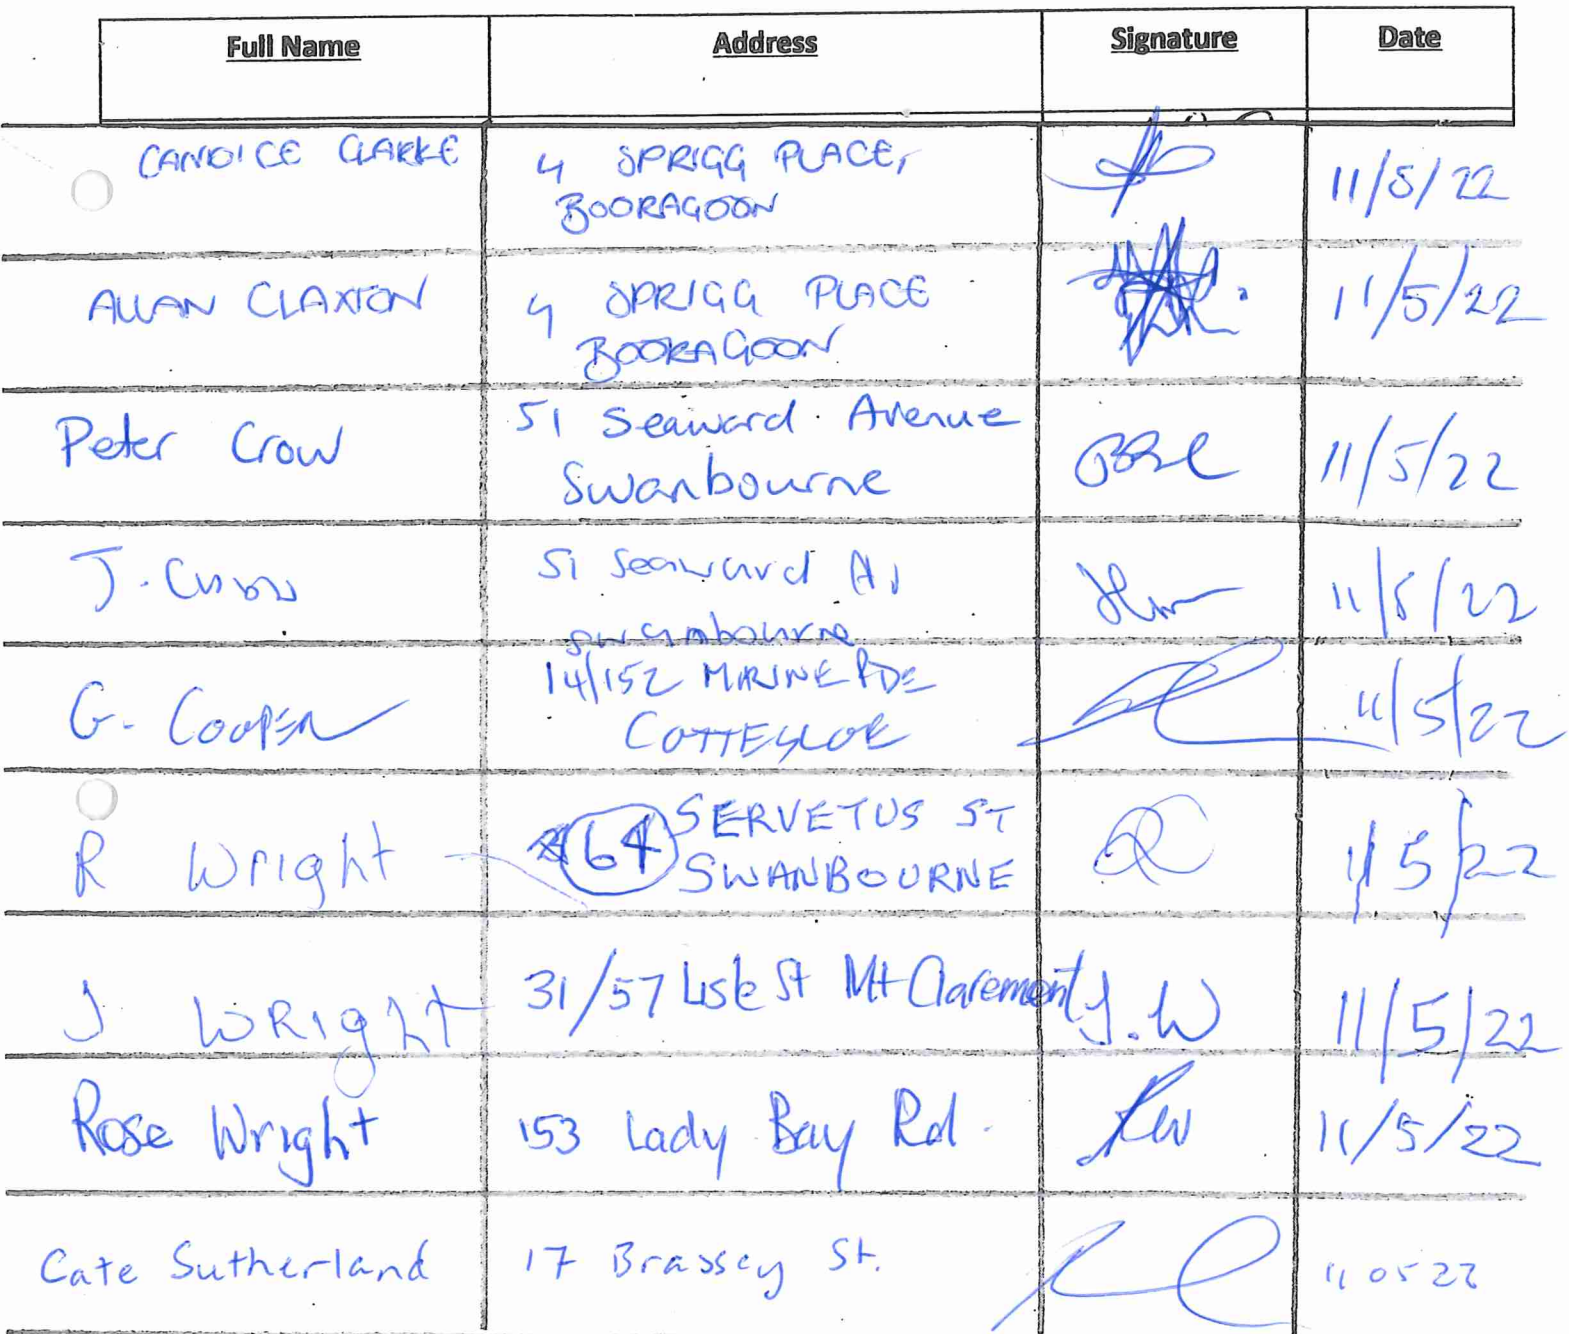 Full Name Address Signature Date
CANDICE CLARKE 4 SPRIGG PLACE, 11/5/22
BOORAGOON
ALLAN CLAXTON 4 SPRIGG PLACE 11/5/22
BOORAGOON
Peter Crow 51 Seaward Avenue 11/5/22
Swanbourne
J. 51 Seaward Av 11/5/22
Swanbourne
G. COOPER 14/152 MARINE PDE 11/5/22
COTTESLOE
R Wright 64 SERVETUS ST 11/5/22
SWANBOURNE
J WRIGHT 31/57 Lisle St Mt Claremont J.W 11/5/22
Rose Wright 153 Lady Bay Rd. RW 11/5/22
Cate Sutherland 17 Brassey St. 11 05 22